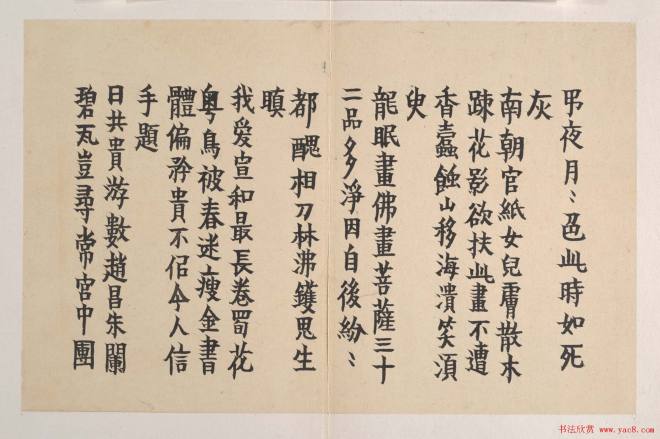 弔夜月〻色此時如死
灰
南朝官紙女兒膚散木
疎花影欲扶此畫不遭
香蠹蝕山移海潰笑湏
臾
龍眠畫佛畫菩薩三十
二品多淨因自後紛〻
都醜相刀林沸鑊鬼生
瞋
我爱宣和最長卷蜀花
粤鳥被春迷瘦金書
體偏矜貴不侣今人信
手題
日共貴游數趙昌朱闌
碧瓦豈尋常宮中團
书法欣赏
www.yac8.com